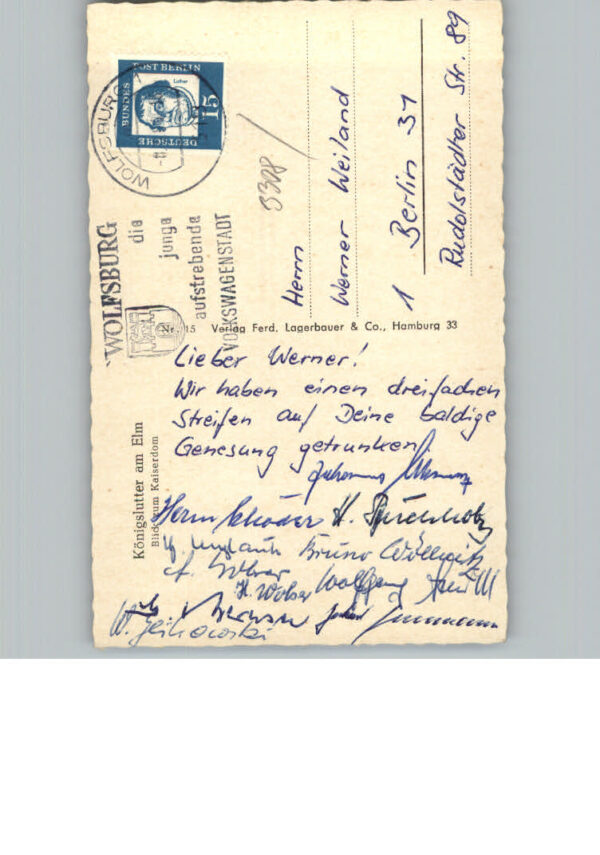 DEUTSCHE
BUNDES
POST BERLIN
Luther
15
WOLFSBURG
WOLFSBURG
die
junge
aufstrebende
VOLKSWAGENSTADT
3308
Herrn
Werner Weiland
1 Berlin 31
Rudolstädter Str. 89
Nr. 15 Verlag Ferd. Lagerbauer & Co., Hamburg 33
Königslutter am Elm
Blick zum Kaiserdom
Lieber Werner!
Wir haben einen dreifachen
Streifen auf Deine baldige
Genesung getrunken
Johannes
Herm Schöder H.
Bruno
H. Wolfgang
W.